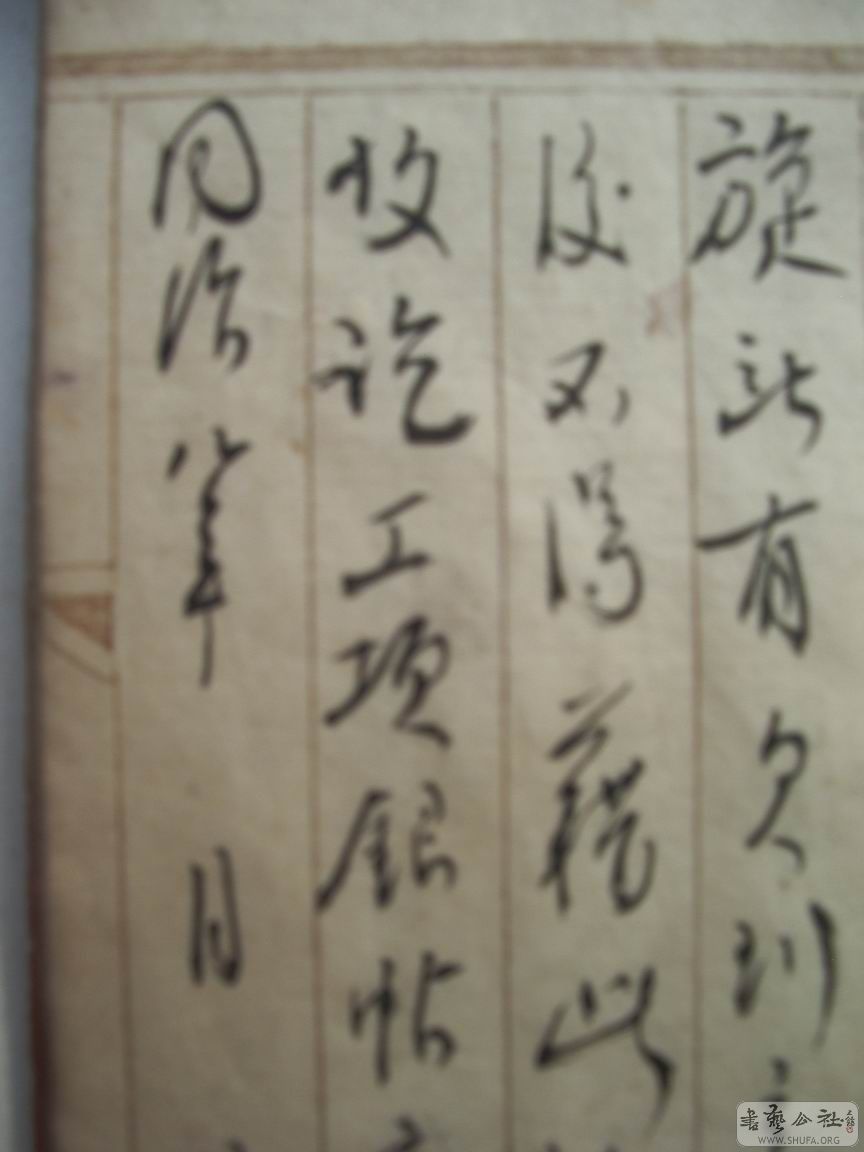 旋站有欠到
後不得藉此
收訖工項銀帖
同治八年 月
書藝公社
WWW.SHUFA.ORG